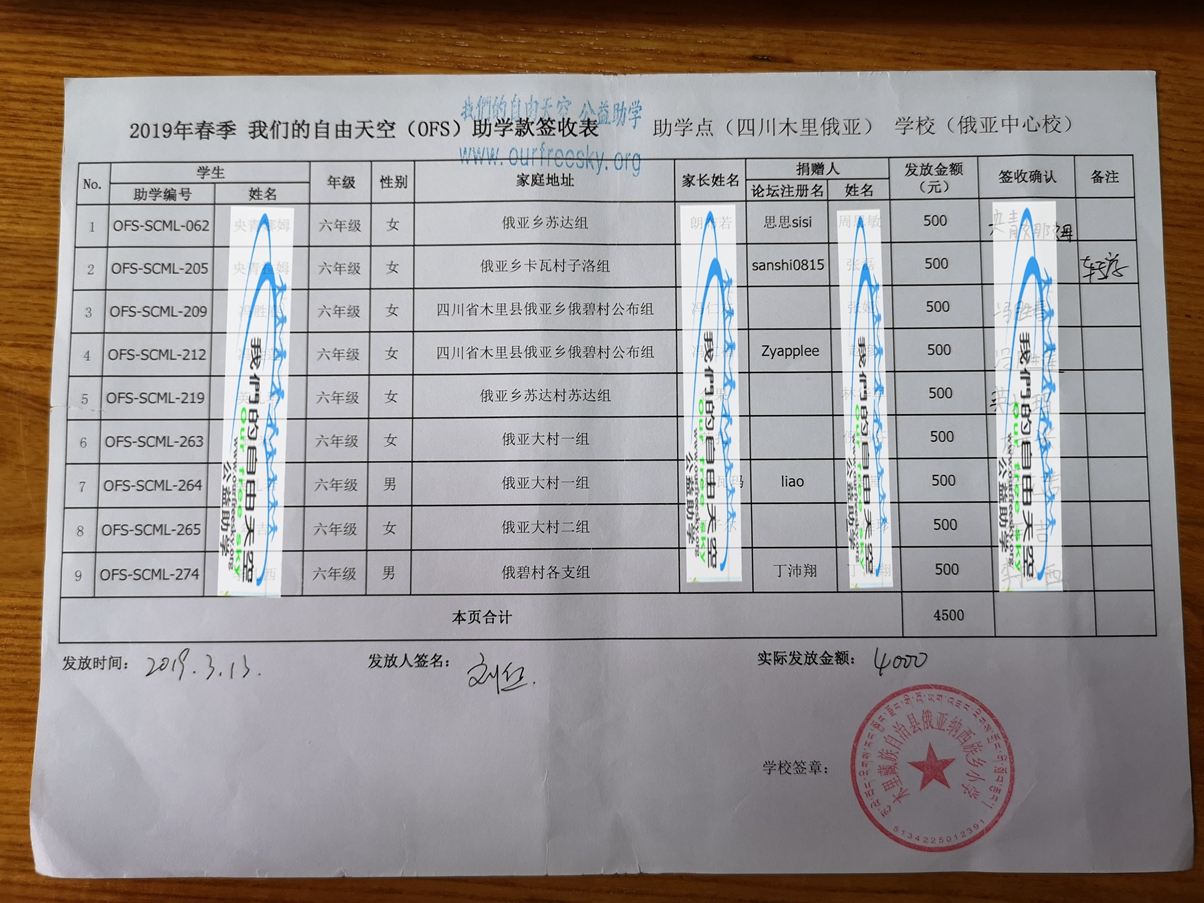 我們的自由天空 公益助学
2019年春季 我们的自由天空（OFS）助学款签收表 助学点（四川木里俄亚） 学校（俄亚中心校）
www.ourfreesky.org
No. 学生 年级 性别 家庭地址 家长姓名 捐赠人 发放金额（元） 签收确认 备注
助学编号 姓名 论坛注册名 姓名
1 OFS-SCML-062 六年级 女 俄亚乡苏达组 思思sisi 500
2 OFS-SCML-205 六年级 女 俄亚乡卡瓦村子洛组 sanshi0815 500
3 OFS-SCML-209 六年级 女 四川省木里县俄亚乡俄碧村公布组 500
4 OFS-SCML-212 六年级 女 四川省木里县俄亚乡俄碧村公布组 Zyapplee 500
5 OFS-SCML-219 六年级 女 俄亚乡苏达村苏达组 500
6 OFS-SCML-263 六年级 女 俄亚大村一组 500
7 OFS-SCML-264 六年级 男 俄亚大村一组 liao 500
8 OFS-SCML-265 六年级 女 俄亚大村二组 500
9 OFS-SCML-274 六年级 男 俄碧村各支组 丁沛翔 500
我們的自由天空
our free sky
www.ourfreesky.org
公益助学
我們的自由天空
our free sky
www.ourfreesky.org
公益助学
我們的自由天空
our free sky
www.ourfreesky.org
公益助学
我們的自由天空
our free sky
www.ourfreesky.org
公益助学
本页合计 4500
发放时间： 2019.3.13. 发放人签名： 实际发放金额： 4000
学校签章：
木里藏族自治县俄亚纳西族乡小学
5134225012391